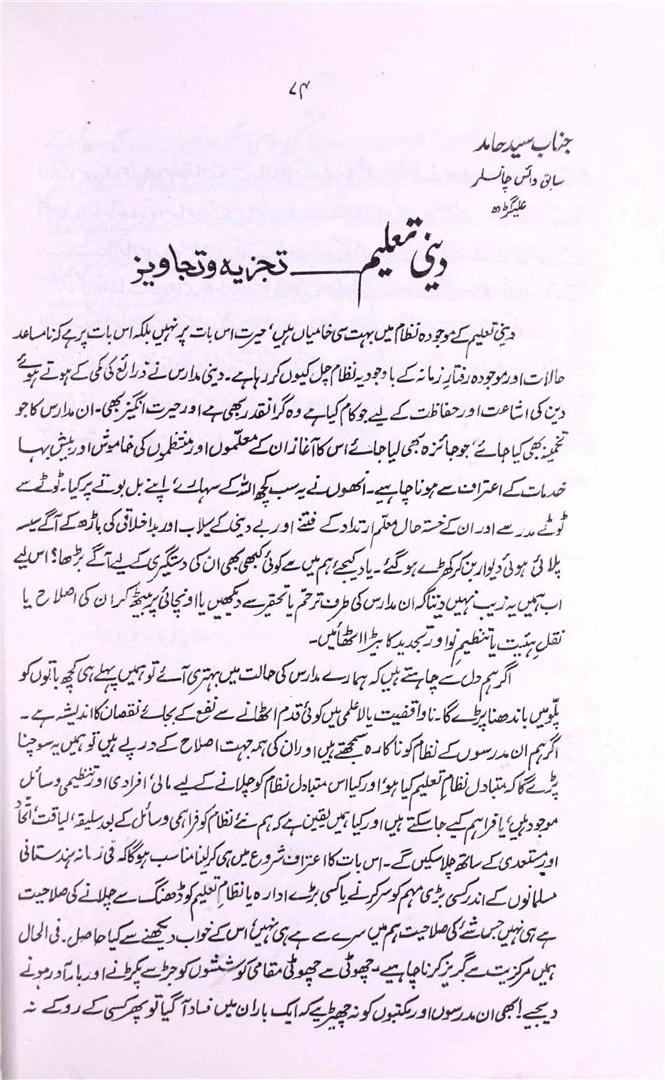 ۷۴
جناب سید حامد
سابق وائس چانسلر
علیگڑھ
دینی تعلیم ـــــ تجزیہ و تجاویز
دینی تعلیم کے موجودہ نظام میں بہت سی خامیاں ہیں، حیرت اس بات پر نہیں بلکہ اس بات پر ہے کہ نا مساعد
حالات اور موجودہ رفتارِ زمانہ کے باوجود یہ نظام چل کیوں کر رہا ہے۔ دینی مدارس نے ذرائع کی کمی کے ہوتے ہوئے
دین کی اشاعت اور حفاظت کے لیے جو کام کیا ہے وہ گرانقدر بھی ہے اور حیرت انگیز بھی۔ ان مدارس کا جو
تخمینہ بھی کیا جائے، جو جائزہ بھی لیا جائے اس کا آغاز ان کے معلّموں اور منتظموں کی خاموش اور بیش بہا
خدمات کے اعتراف سے ہونا چاہیے۔ انھوں نے یہ سب کچھ اللہ کے سہارے، اپنے بل بوتے پر کیا۔ ٹوٹے سے
ٹوٹے مدرسے اور ان کے خستہ حال معلّم ارتداد کے فتنے اور بے دینی کے سیلاب اور بداخلاقی کی باڑھ کے آگے سیسہ
پلائی ہوئی دیوار بن کر کھڑے ہو گئے۔ یاد کیجئے ہم میں سے کوئی کبھی بھی ان کی دستگیری کے لیے آگے بڑھا؟ اس لیے
اب ہمیں یہ زیب نہیں دیتا کہ ان مدارس کی طرف ترحّم یا تحقیر سے دیکھیں یا اونچائی پر بیٹھ کر ان کی اصلاح یا
نقلِ ہیئت یا تنظیمِ نو اور تجدید کا بیڑا اٹھائیں۔
اگر ہم دل سے چاہتے ہیں کہ ہمارے مدارس کی حالت میں بہتری آئے تو ہمیں پہلے ہی کچھ باتوں کو
پلّو میں باندھنا پڑے گا۔ ناواقفیت یا لاعلمی میں کوئی قدم اٹھانے سے نفع کے بجائے نقصان کا اندیشہ ہے۔
اگر ہم ان مدرسوں کے نظام کو ناکارہ سمجھتے ہیں اور ان کی ہمہ جہت اصلاح کے درپے ہیں تو ہمیں یہ سوچنا
پڑے گا کہ متبادل نظامِ تعلیم کیا ہو، اور کیا اس متبادل نظام کو چلانے کے لیے مالی، افرادی اور تنظیمی وسائل
موجود ہیں، یا فراہم کیے جا سکتے ہیں اور کیا ہمیں یقین ہے کہ ہم نئے نظام کو فراہمی وسائل کے بعد سلیقہ، لیاقت، اتحاد
اور مستعدی کے ساتھ چلا سکیں گے۔ اس بات کا اعتراف شروع میں ہی کر لینا مناسب ہو گا کہ فی زمانہ ہندستانی
مسلمانوں کے اندر کسی بڑی مہم کو سر کرنے یا کسی بڑے ادارہ یا نظامِ تعلیم کو ڈھنگ سے چلانے کی صلاحیت
ہے ہی نہیں جس شے کی صلاحیت ہم میں سرے سے ہے ہی نہیں اس کے خواب دیکھنے سے کیا حاصل۔ فی الحال
ہمیں مرکزیت سے گریز کرنا چاہیے۔ چھوٹی سے چھوٹی مقامی کوششوں کو جڑ سے پکڑنے اور بارآور ہونے
دیجیے! ابھی ان مدرسوں اور مکتبوں کو نہ چھیڑیے کہ ایک بار ان میں فساد آگیا تو پھر کسی کے روکے نہ